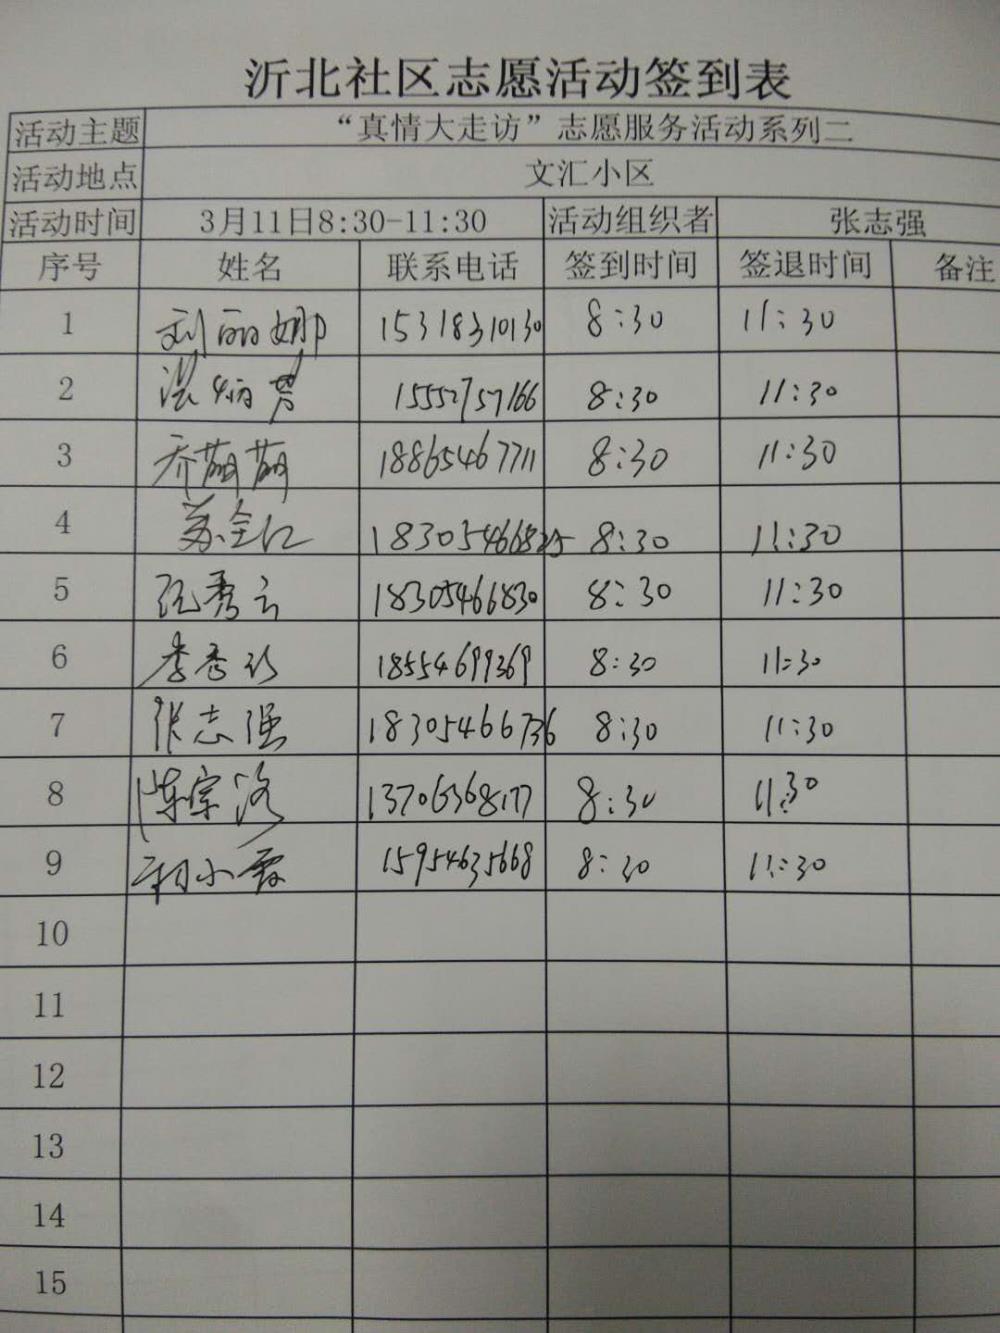 沂北社区志愿活动签到表
活动主题 “真情大走访”志愿服务活动系列二
活动地点 文汇小区
活动时间 3月11日8:30-11:30 活动组织者 张志强
序号 姓名 联系电话 签到时间 签退时间 备注
1 刘丽娜 15318310130 8:30 11:30
2 15552757166 8:30 11:30
3 乔萌萌 18865467711 8:30 11:30
4 苏全红 18305466825 8:30 11:30
5 阮秀云 18305466830 8:30 11:30
6 李秀珍 18554699369 8:30 11:30
7 张志强 18305466736 8:30 11:30
8 陈宗洛 13706368177 8:30 11:30
9 15954635668 8:30 11:30
10
11
12
13
14
15